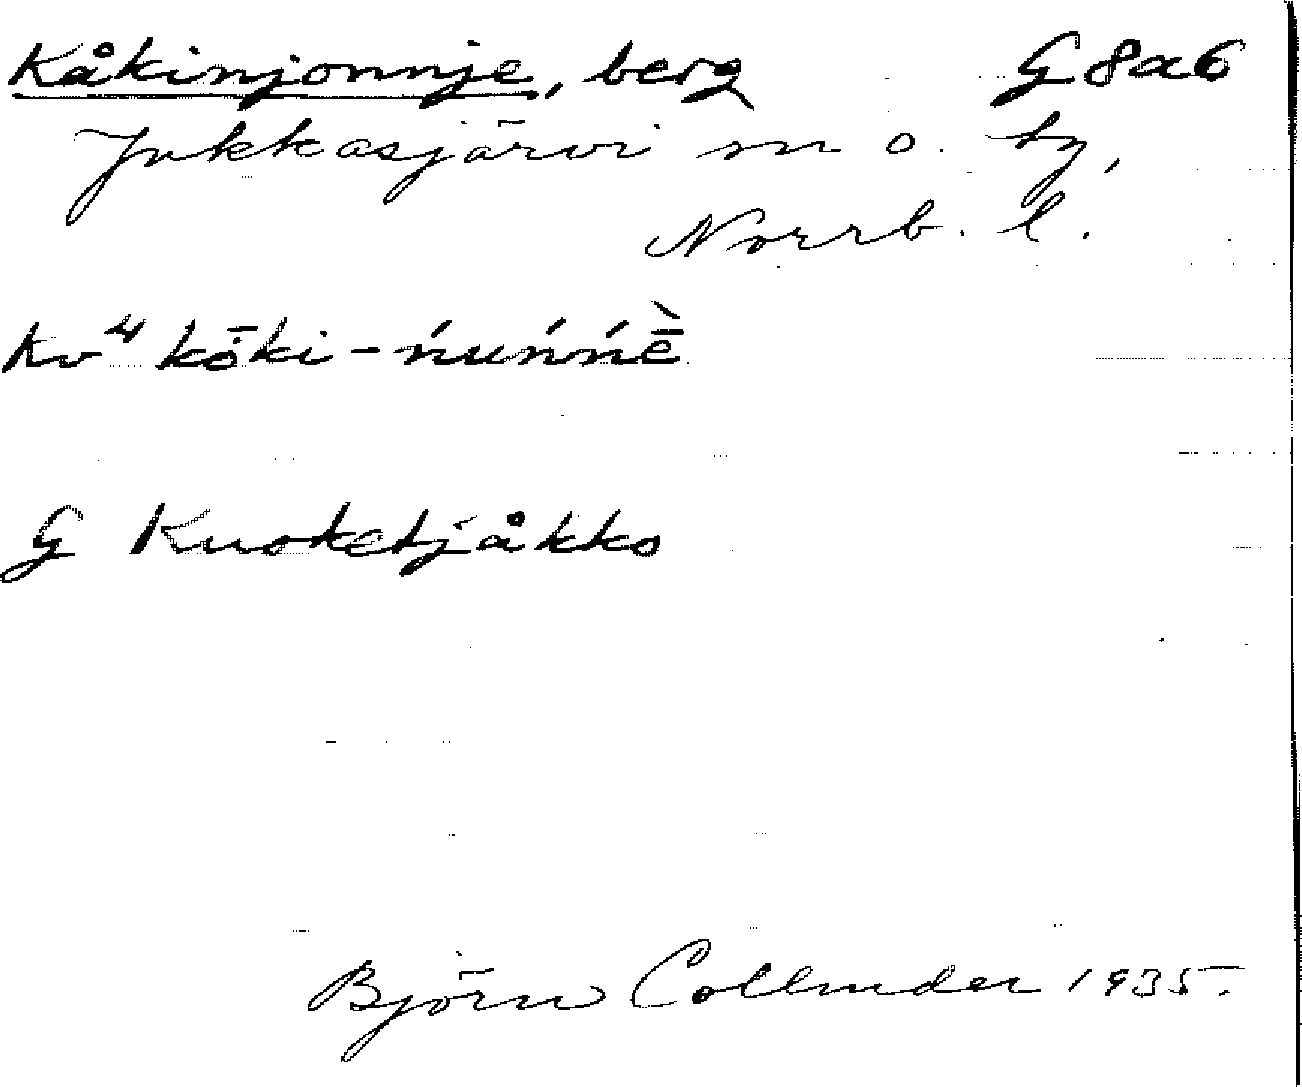 Kåkinjonnje, berg G8a6
Jukkasjärvi sn o. tg,
Norrb. l.
Kv⁴ kō̬ki-ńuńńḕ
G Kuoketjåkko
Björn Collinder 1935.